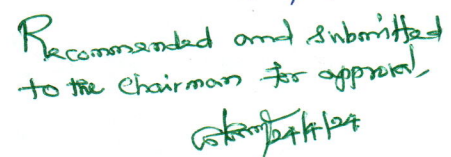 Recommended and submitted
to the Chairman for approval,
24/4/24